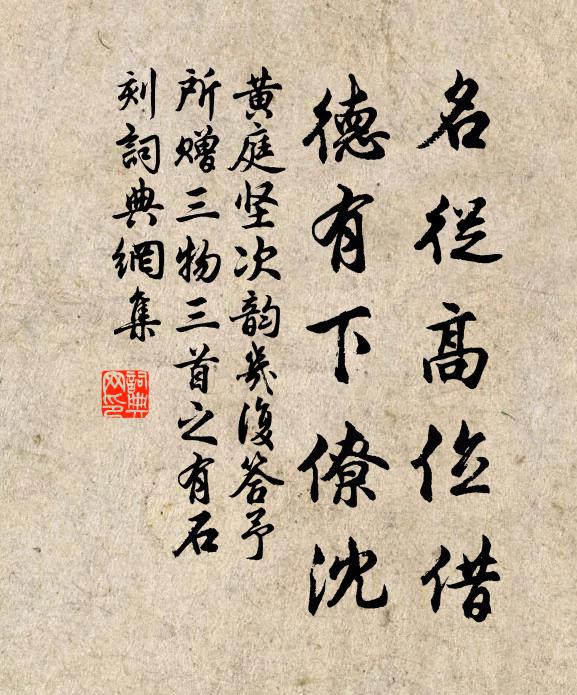 名從高位借
德有下僚沈
黄庭坚次韵几復答予
所赠三物三首之有石
刻詞典網集
詞典
网印